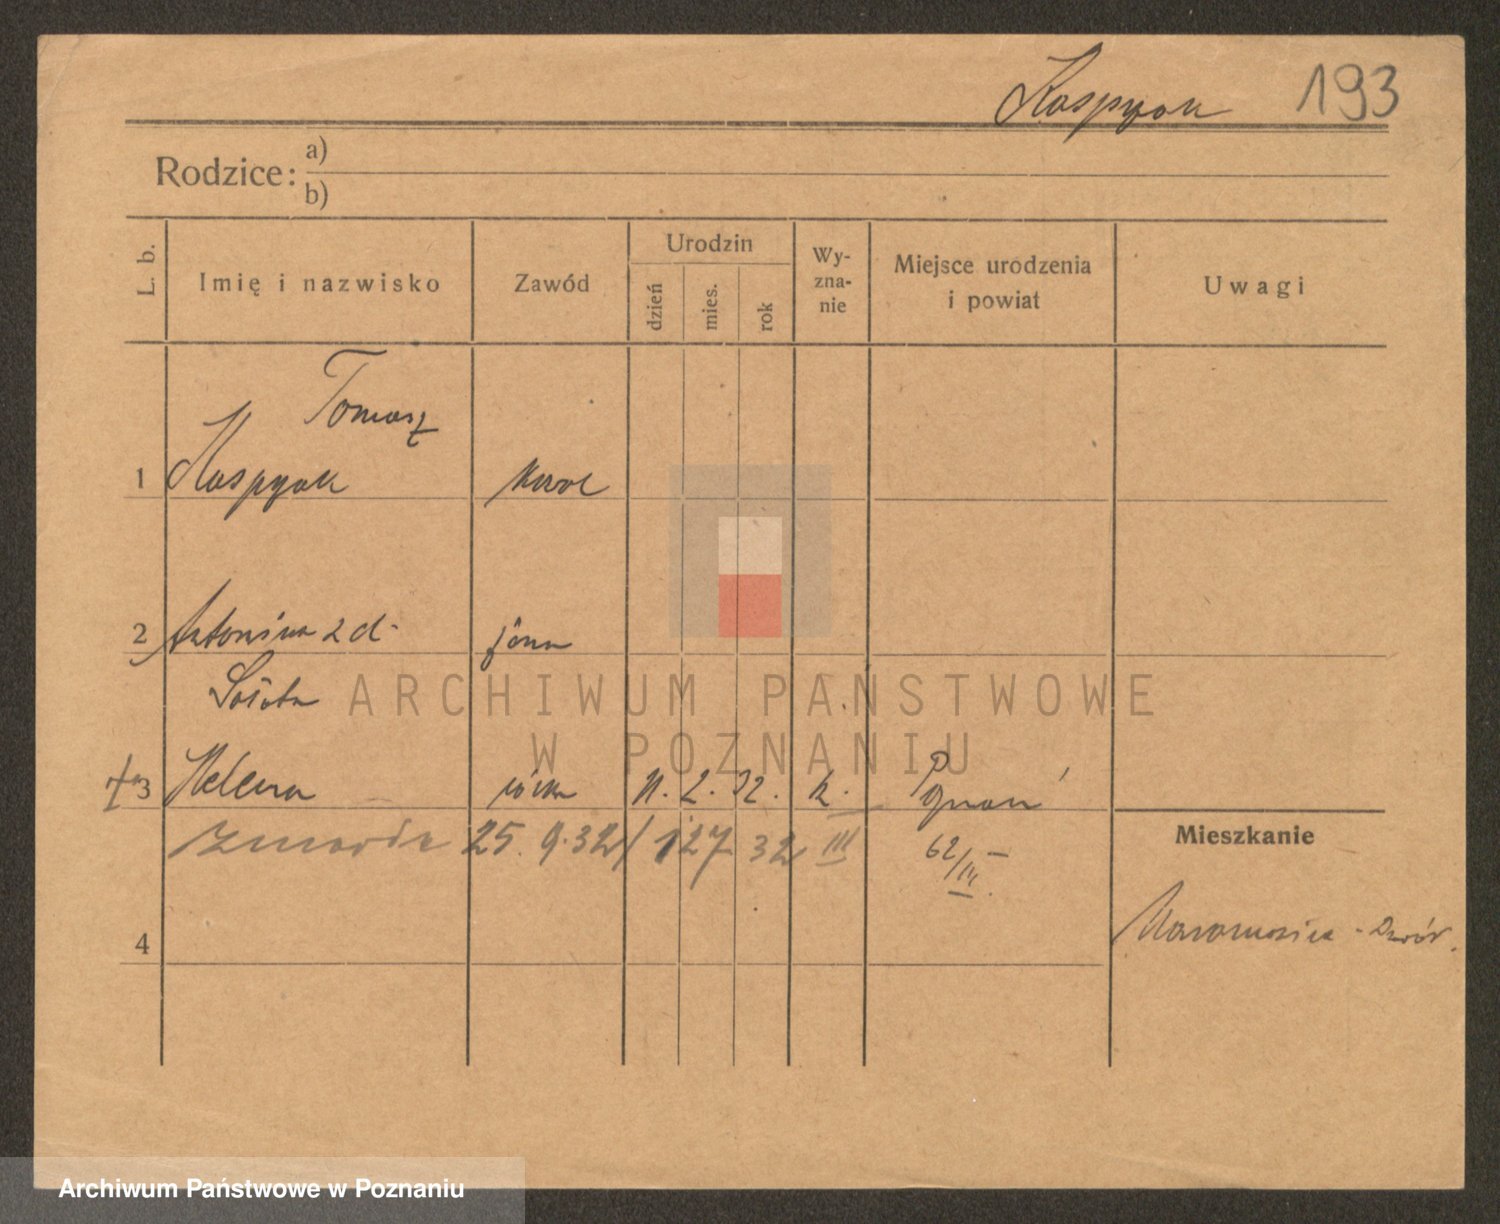 Kaspyak 193
Rodzice: a)
b)
L. b. Imię i nazwisko Zawód Urodzin dzień mies. rok Wy-zna-nie Miejsce urodzenia i powiat Uwagi
Tomasz
1 Kaspyak
2 Antonina z d. żona
3 Helena córka 11. 2. 32. k. Poznań
zmarła 25. 9. 32 / 127 32 III 62/III
Mieszkanie
4
ARCHIWUM PAŃSTWOWE
W POZNANIU
Archiwum Państwowe w Poznaniu